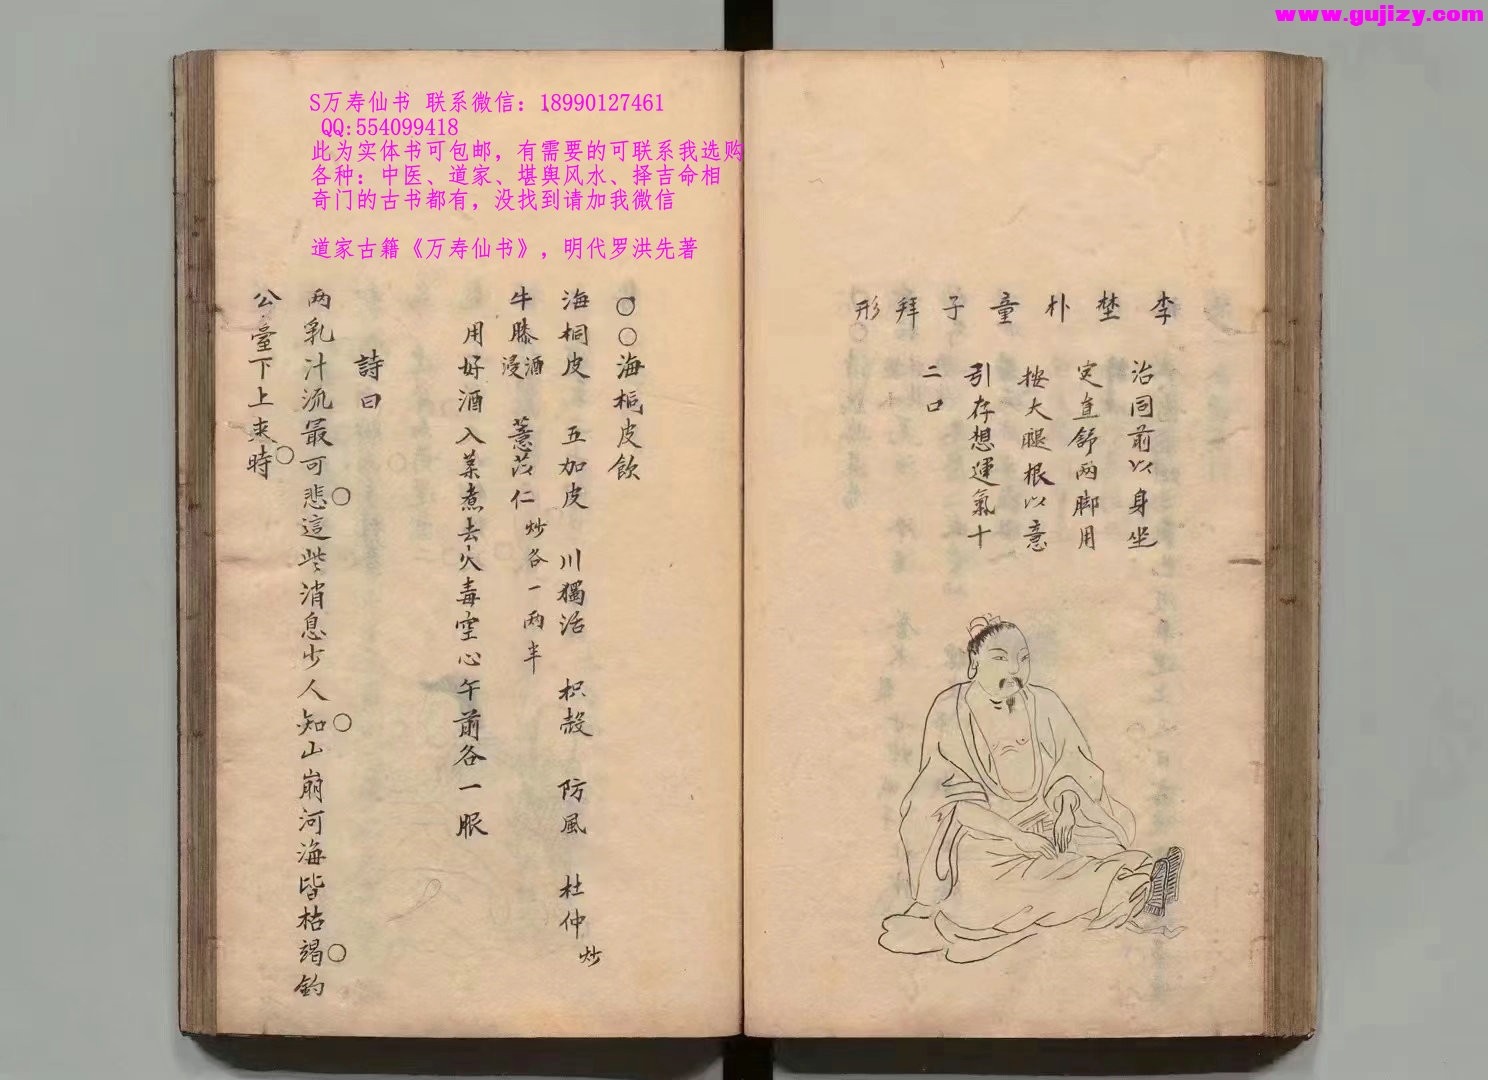 www.gujizy.com
S万寿仙书 联系微信：18990127461
QQ:554099418
此为实体书可包邮，有需要的可联系我选购
各种：中医、道家、堪舆风水、择吉命相
奇门的古书都有，没找到请加我微信
道家古籍《万寿仙书》，明代罗洪先著
李埜朴童子拜形
治同前以身坐
定直舒两脚用
按大腿根以意
引存想運氣十
二口
○○海桐皮飲
海桐皮 五加皮 川獨活 枳殼 防風 杜仲炒
牛膝酒浸 薏苡仁炒各一两半
用好酒入藥煮去火毒空心午前各一服
詩曰
两乳汁流最可悲○這些消息少人知○山崩河海皆枯竭○釣
公臺下上来○時